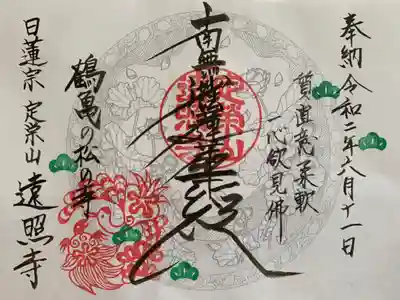 奉納 令和二年六月十一日
質直意柔軟
一心欲見佛
南無妙法蓮華経
鶴亀の松の寺
日蓮宗 定栄山 遠照寺